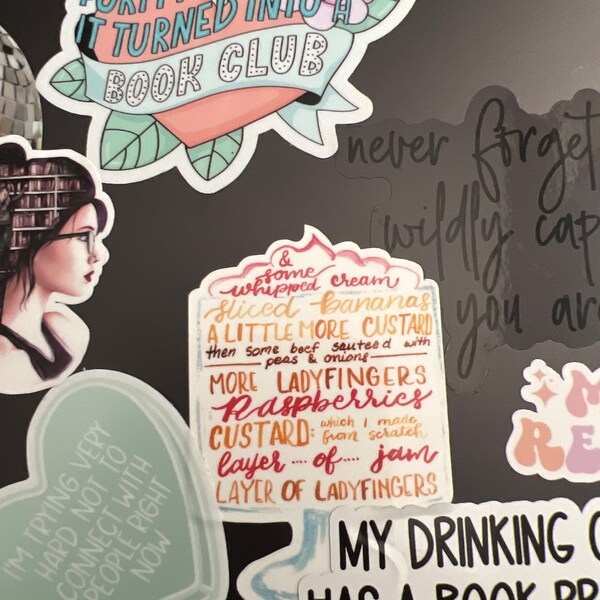 IT TURNED INTO A
BOOK CLUB
never forget
wildly
you are
&
some
whipped cream
sliced bananas
A LITTLE MORE CUSTARD
then some beef sauteed with
peas & onions
MORE LADYFINGERS
Raspberries
CUSTARD: which I made
from scratch
layer .... of .... jam
LAYER OF LADYFINGERS
I'M TRYING VERY
HARD NOT TO
CONNECT WITH
PEOPLE RIGHT
NOW
MY DRINKING
HAS A BOOK